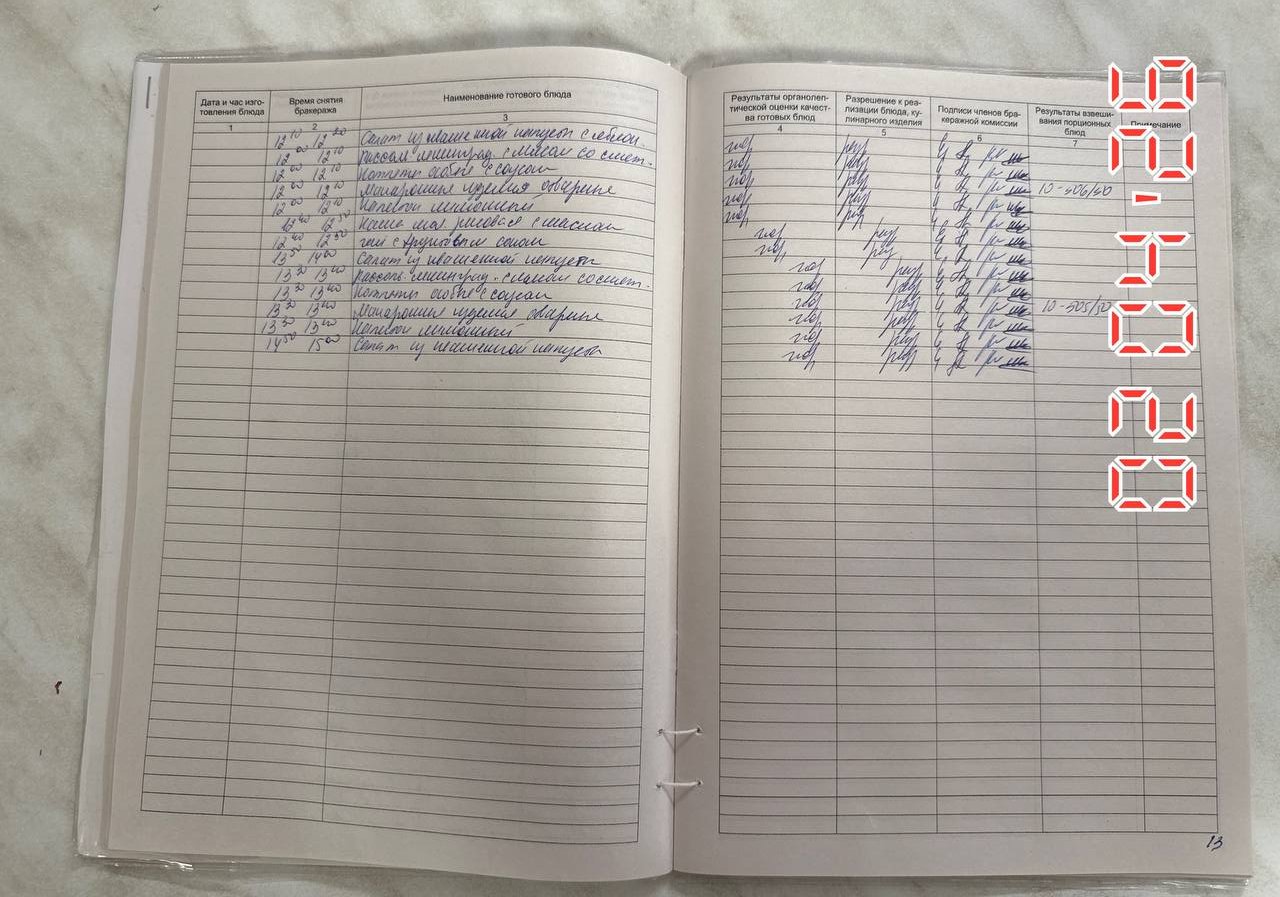 Дата и час изго-
товления блюда
Время снятия
бракеража
Наименование готового блюда
1
2
3
12 10 12 20 Салат из квашенной капусты с яблок.
12 00 12 10 Рассол. ленинград. с мясом со смет.
12 00 12 10 Котлеты особые с соусом
12 00 12 10 Макаронные изделия отварные
12 00 12 10 Напиток лимонный
12 40 12 50 Каша мол. рисовая с маслом
12 40 12 50 чай с фруктовым соком
13 50 14 00 Салат из квашенной капусты
13 30 13 40 Рассол. ленинград. с мясом со смет.
13 30 13 40 Котлеты особые с соусом
13 30 13 40 Макаронные изделия отварные
13 30 13 40 Напиток лимонный
14 50 15 00 Салат из квашенной капусты
Результаты органолеп-
тической оценки качест-
ва готовых блюд
Разрешение к реа-
лизации блюда, ку-
линарного изделия
Подписи членов бра-
керажной комиссии
Результаты взвеши-
вания порционных
блюд
Примечание
4
5
6
7
гот раз
гот раз
гот раз 10-506/50
гот раз
гот раз
гот раз
гот раз
гот раз
гот раз
гот раз 10-505/50
гот раз
гот раз
гот раз
13